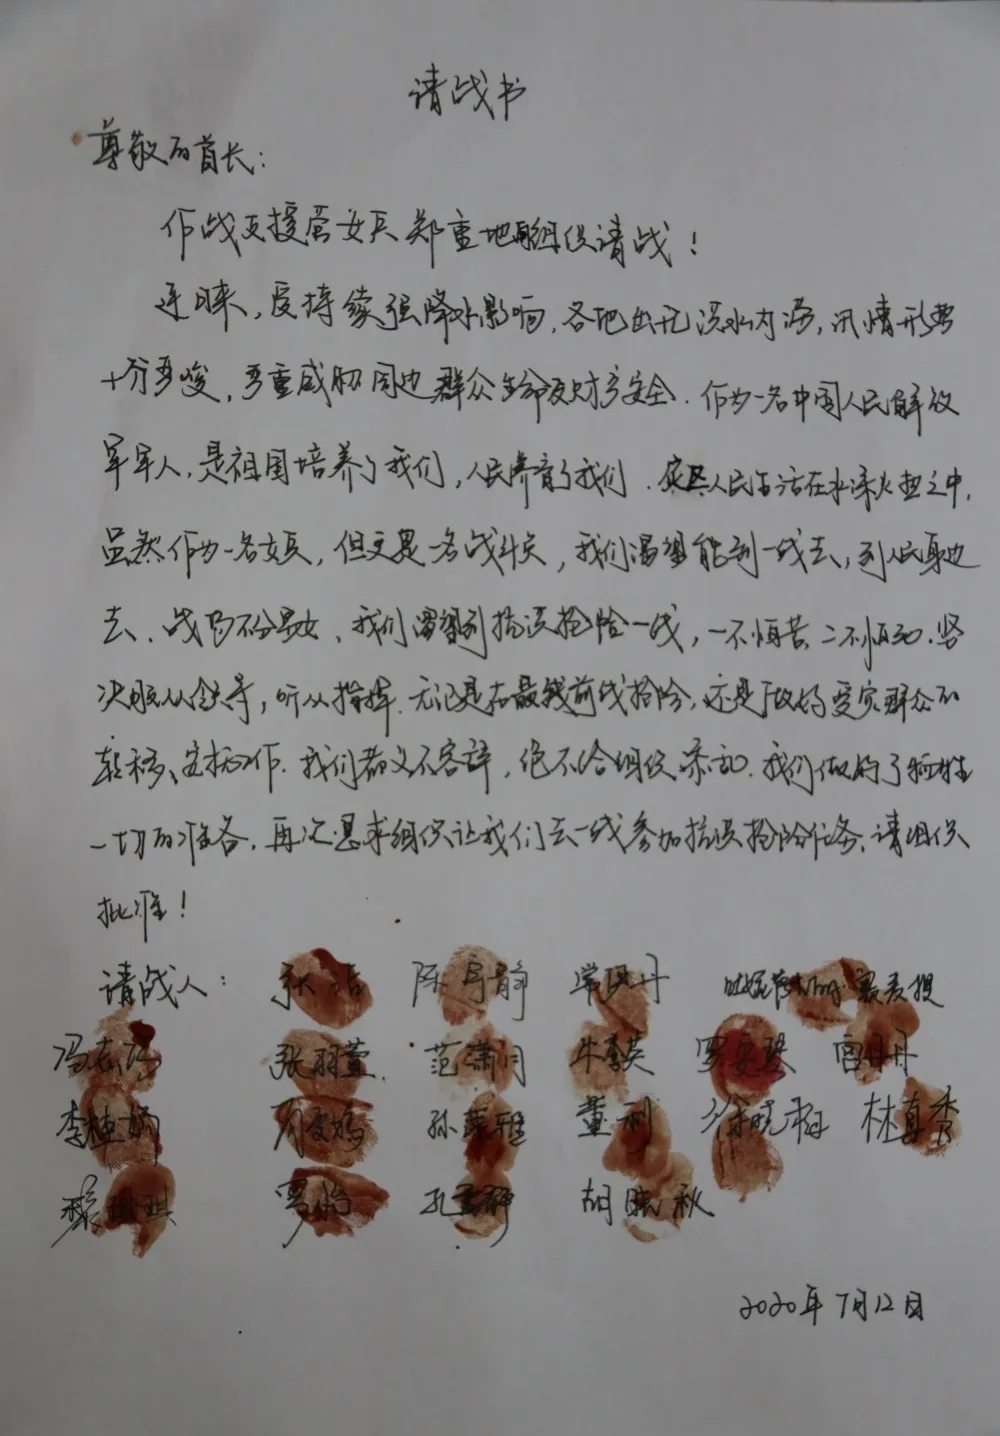 请战书
尊敬的首长：
作战支援营女兵郑重地向组织请战！
连日来，受持续强降水影响，各地出现洪水内涝，汛情形势
十分严峻，严重威胁周边群众生命及财产安全．作为一名中国人民解放
军军人，是祖国培养了我们，人民养育了我们．灾区人民生活在水深火热之中，
虽然作为一名女兵，但又是一名战斗员，我们渴望能到一线去，到人民身边
去．战场不分男女，我们渴望到抗洪抢险一线，一不怕苦、二不怕死．坚
决服从领导，听从指挥．无论是在最线前线抢险，还是做好受灾群众的
转移、安抚工作．我们都义不容辞，绝不给组织添乱．我们做好了牺牲
一切的准备．再次恳求组织让我们去一线参加抗洪抢险任务，请组织
批准！
请战人： 张洁 陈 静 常 丹
冯 张羽萱 范潇月 牛 英 罗安琴 宫丹丹
李桂娇 孙 雅 董利 徐晓梅 林真秀
琪 罗怡 孔 胡 秋
2020年7月12日